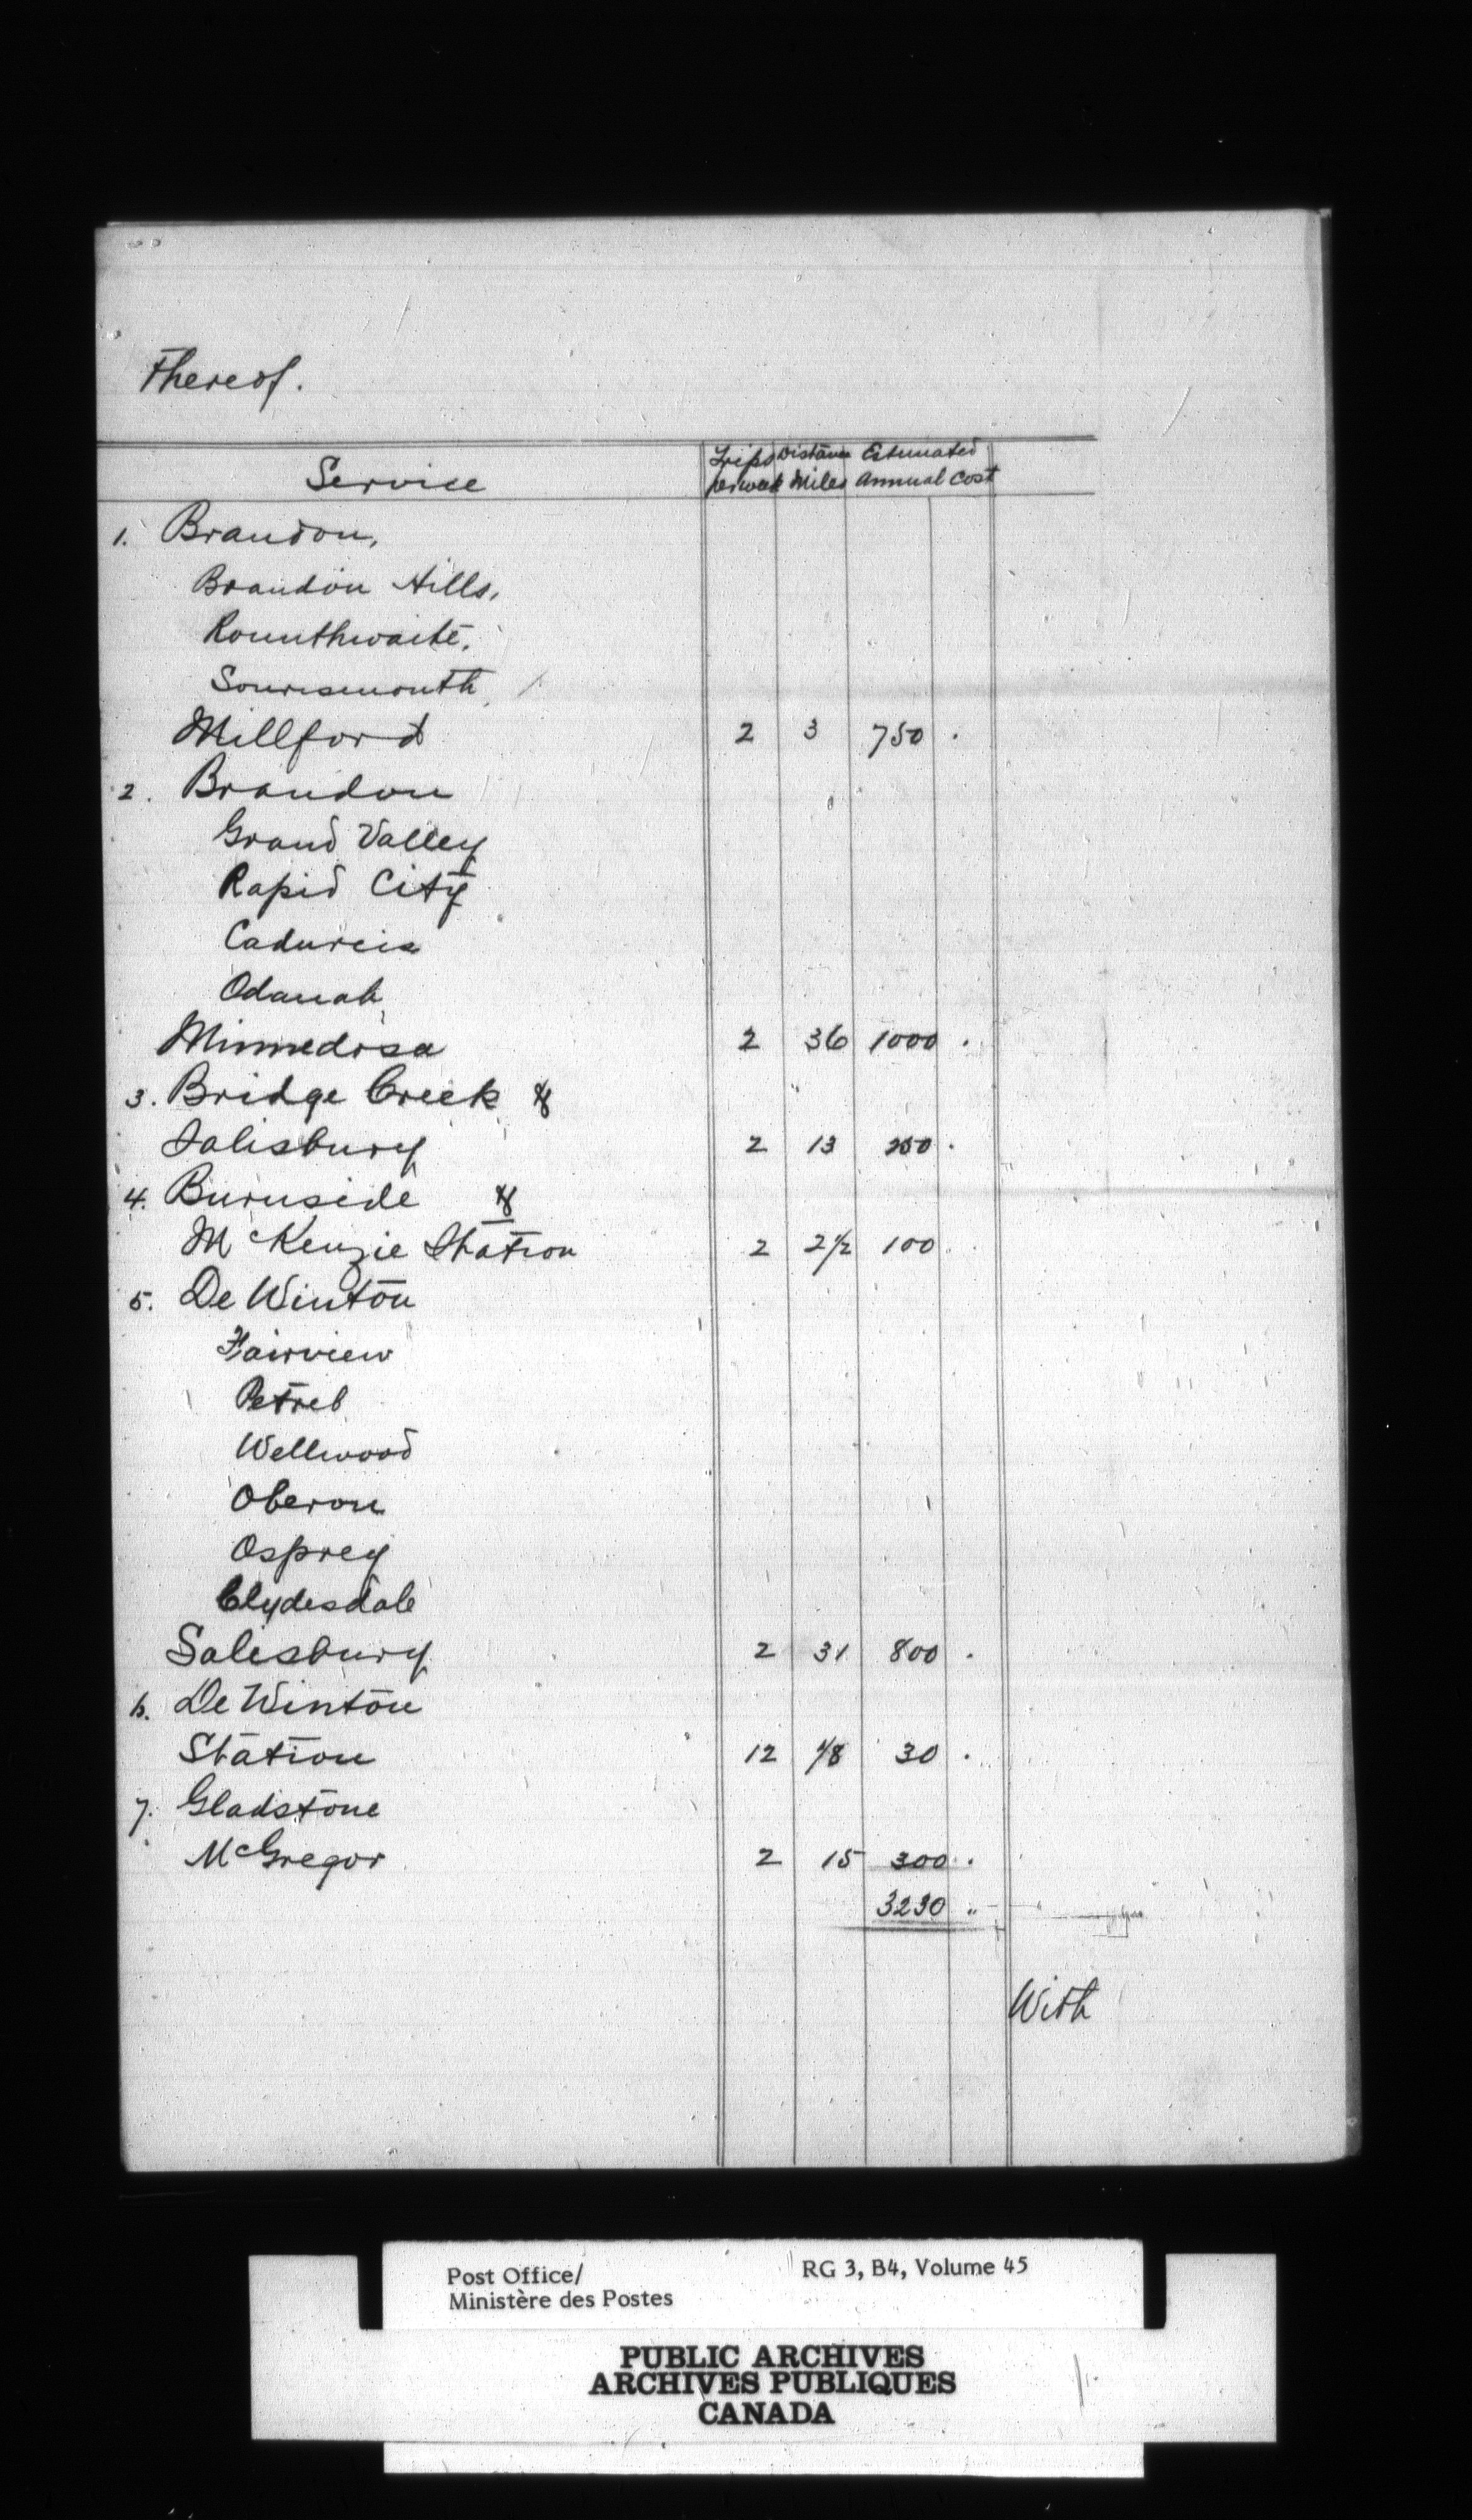 Thereof.
Service Trips per week Distance Miles Estimated Annual Cost
1. Brandon,
Brandon Hills,
Rounthwaite,
Sourismouth,
Millford 2 3 750 .
2. Brandon
Grand Valley
Rapid City
Cadurcis
Odanah
Minnedosa 2 36 1000 .
3. Bridge Creek &
Salisbury 2 13 250 .
4. Burnside &
McKenzie Station 2 2½ 100 .
5. De Winton
Fairview
Petrel
Wellwood
Oberon
Osprey
Clydesdale
Salisbury 2 31 800 .
6. De Winton
Station 12 1/8 30 .
7. Gladstone
McGregor 2 15 300 .
3230 "
With
Post Office/ RG 3, B4, Volume 45
Ministère des Postes
PUBLIC ARCHIVES
ARCHIVES PUBLIQUES
CANADA